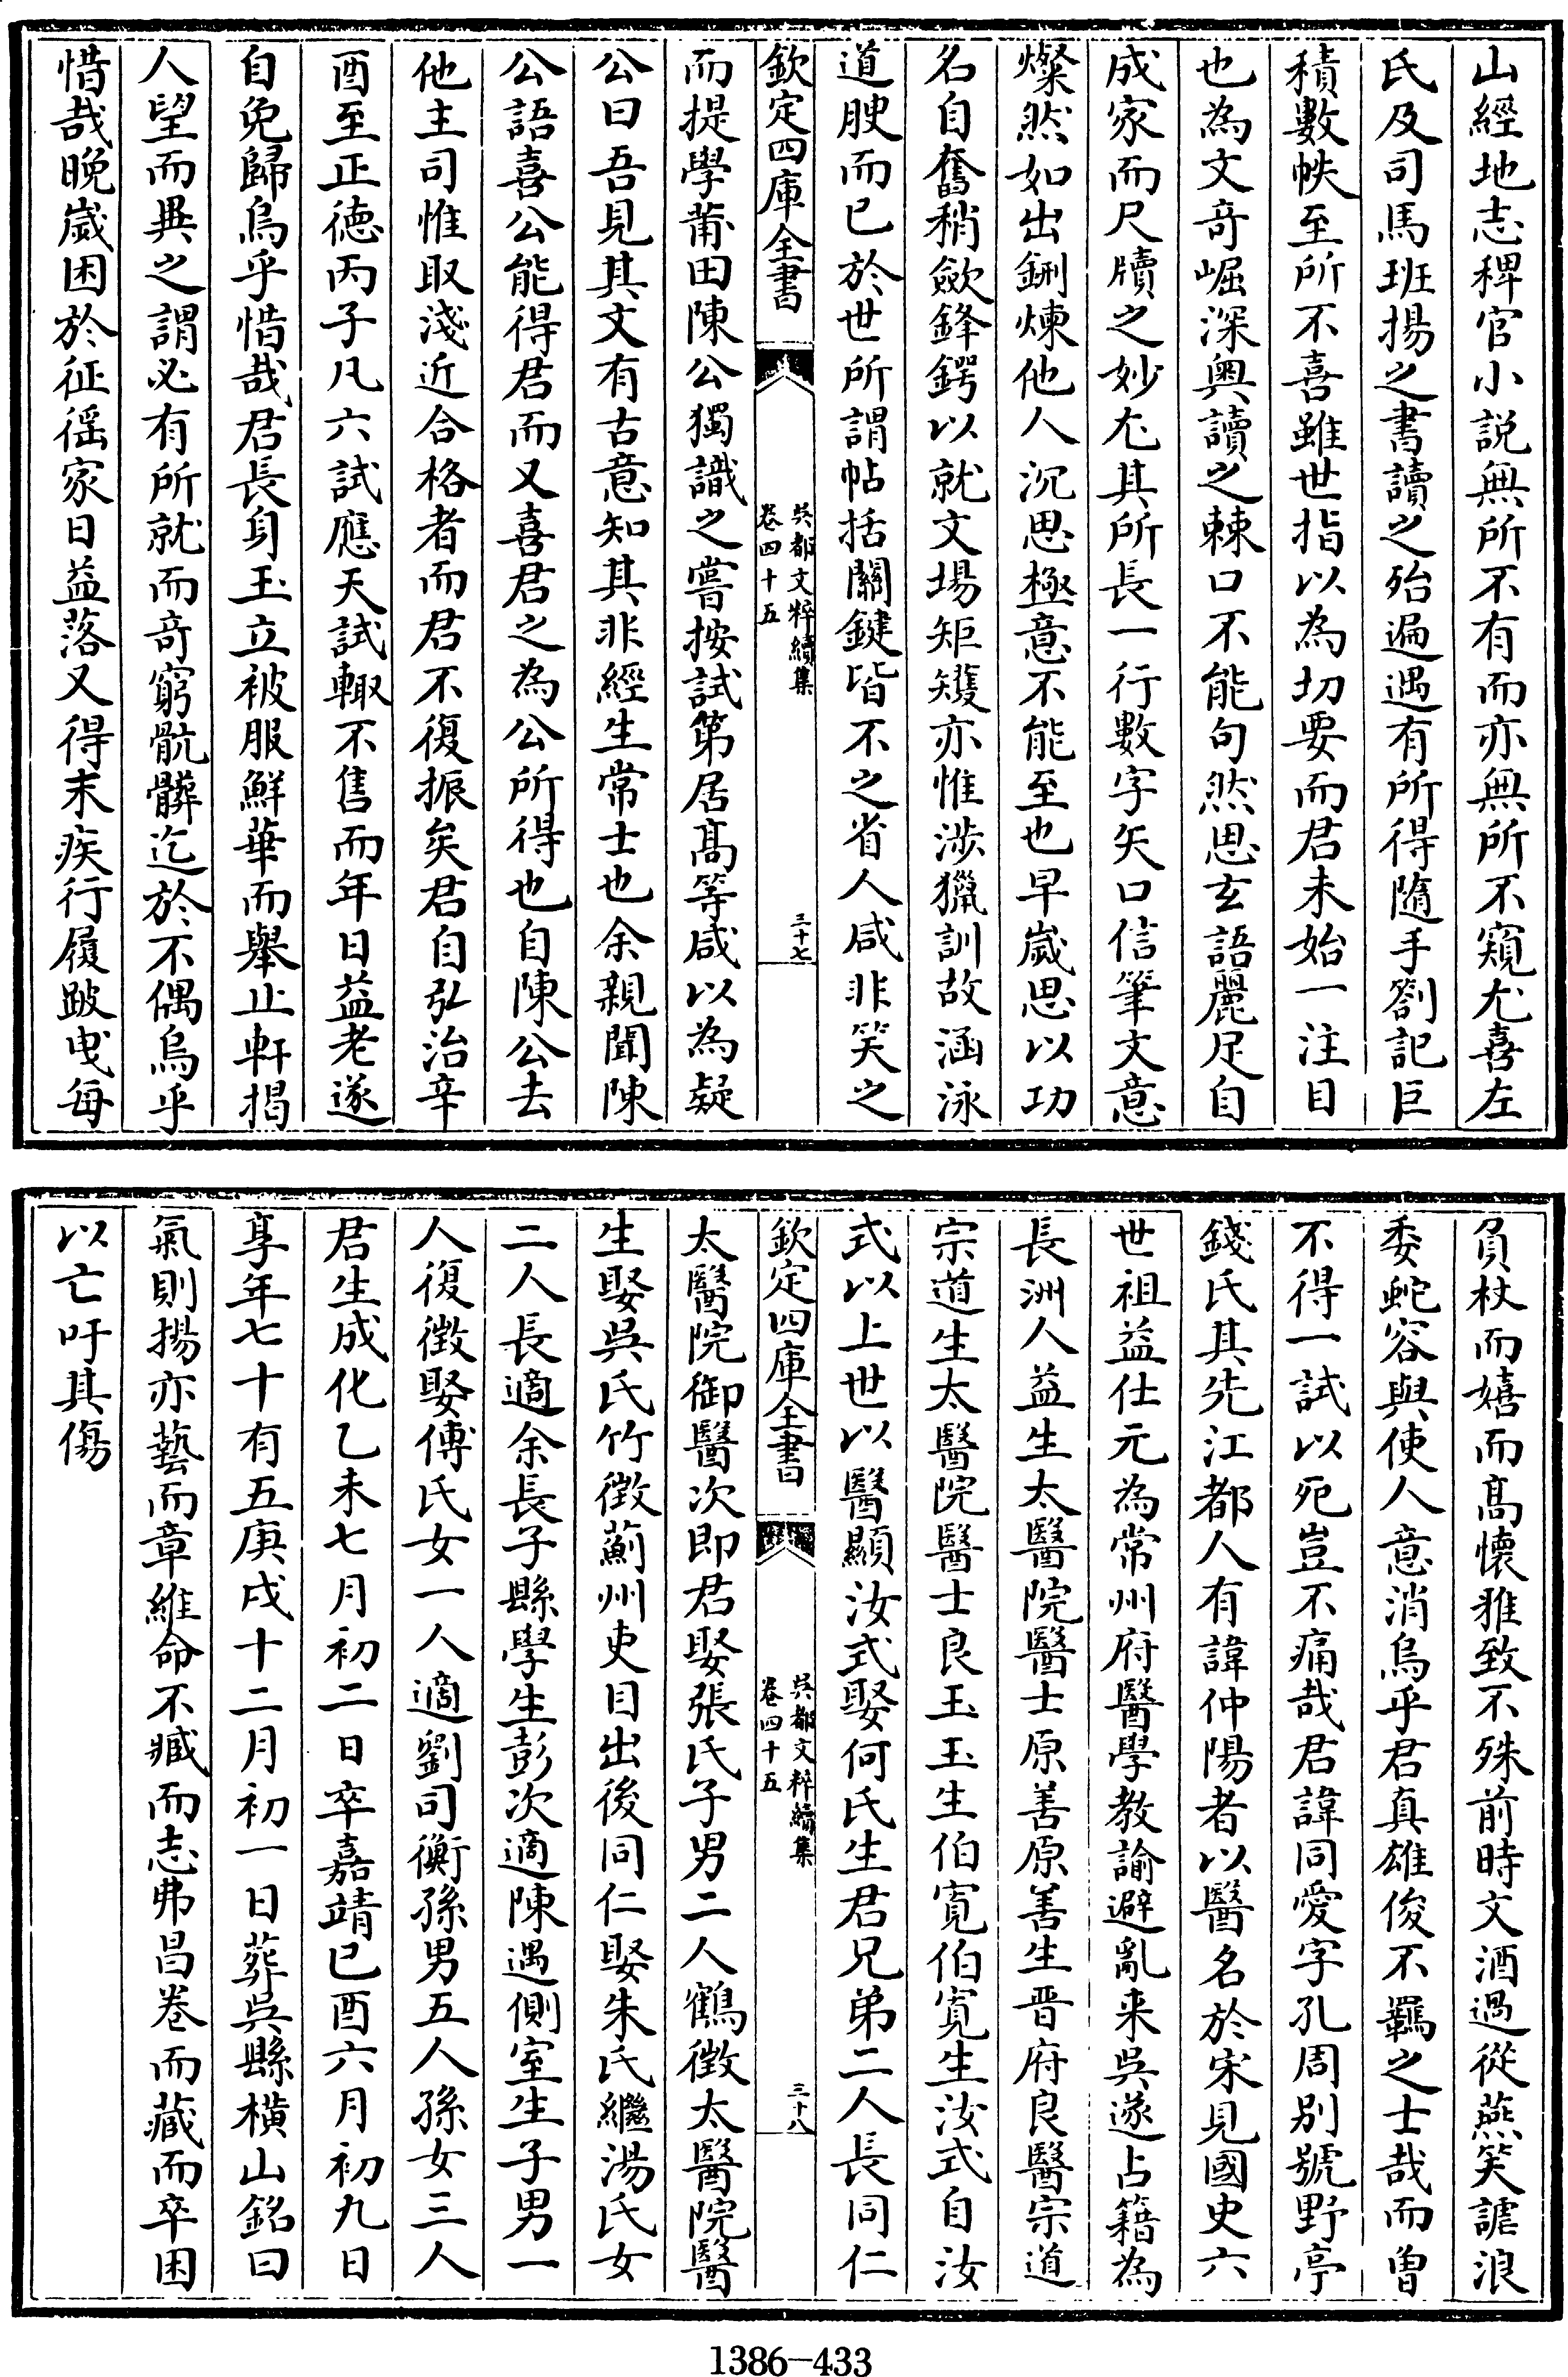 山經地志稗官小説無所不有而亦無所不窺尤喜左
氏及司馬班揚之書讀之殆遍遇有所得隨手劄記巨
積數帙至所不喜雖世指以為切要而君未始一注目
也為文竒崛深奥讀之棘口不能句然思玄語麗足自
成家而尺牘之妙尤其所長一行數字矢口信筆文意
燦然如出鉶煉他人沉思極意不能至也早嵗思以功
名自奮稍歛鋒鍔以就文場矩矱亦惟涉獵訓故涵泳
道腴而已於世所謂帖括關鍵皆不之省人咸非笑之
欽定四庫全書
吳都文粹續集
卷四十五
三十七
而提學莆田陳公獨識之嘗按試第居髙等咸以為疑
公曰吾見其文有古意知其非經生常士也余親聞陳
公語喜公能得君而又喜君之為公所得也自陳公去
他主司惟取淺近合格者而君不復振矣君自弘治辛
酉至正徳丙子凡六試應天試輙不售而年日益老遂
自免歸烏乎惜哉君長身玉立被服鮮華而舉止軒揭
人望而異之謂必有所就而竒窮骯髒迄於不偶烏乎
惜哉晚嵗困於征徭家日益落又得末疾行履跛曳每
負杖而嬉而髙懷雅致不殊前時文酒過從燕笑謔浪
委蛇容與使人意消烏乎君真雄俊不羈之士哉而曽
不得一試以死豈不痛哉君諱同愛字孔周别號野亭
錢氏其先江都人有諱仲陽者以醫名於宋見國史六
世祖益仕元為常州府醫學教諭避亂来吳遂占籍為
長洲人益生太醫院醫士原善原善生晋府良醫宗道
宗道生太醫院醫士良玉玉生伯寛伯寛生汝式自汝
式以上世以醫顯汝式娶何氏生君兄弟二人長同仁
欽定四庫全書
吳都文粹續集
卷四十五
三十八
太醫院御醫次即君娶張氏子男二人鶴徴太醫院醫
生娶吳氏竹徴薊州吏目出後同仁娶朱氏繼湯氏女
二人長適余長子縣學生彭次適陳遇側室生子男一
人復徴娶傅氏女一人適劉司衡孫男五人孫女三人
君生成化乙未七月初二日卒嘉靖已酉六月初九日
享年七十有五庚戌十二月初一日葬吳縣横山銘曰
氣則揚亦藝而章維命不臧而志弗昌巻而藏而卒困
以亡吁其傷
1386-433